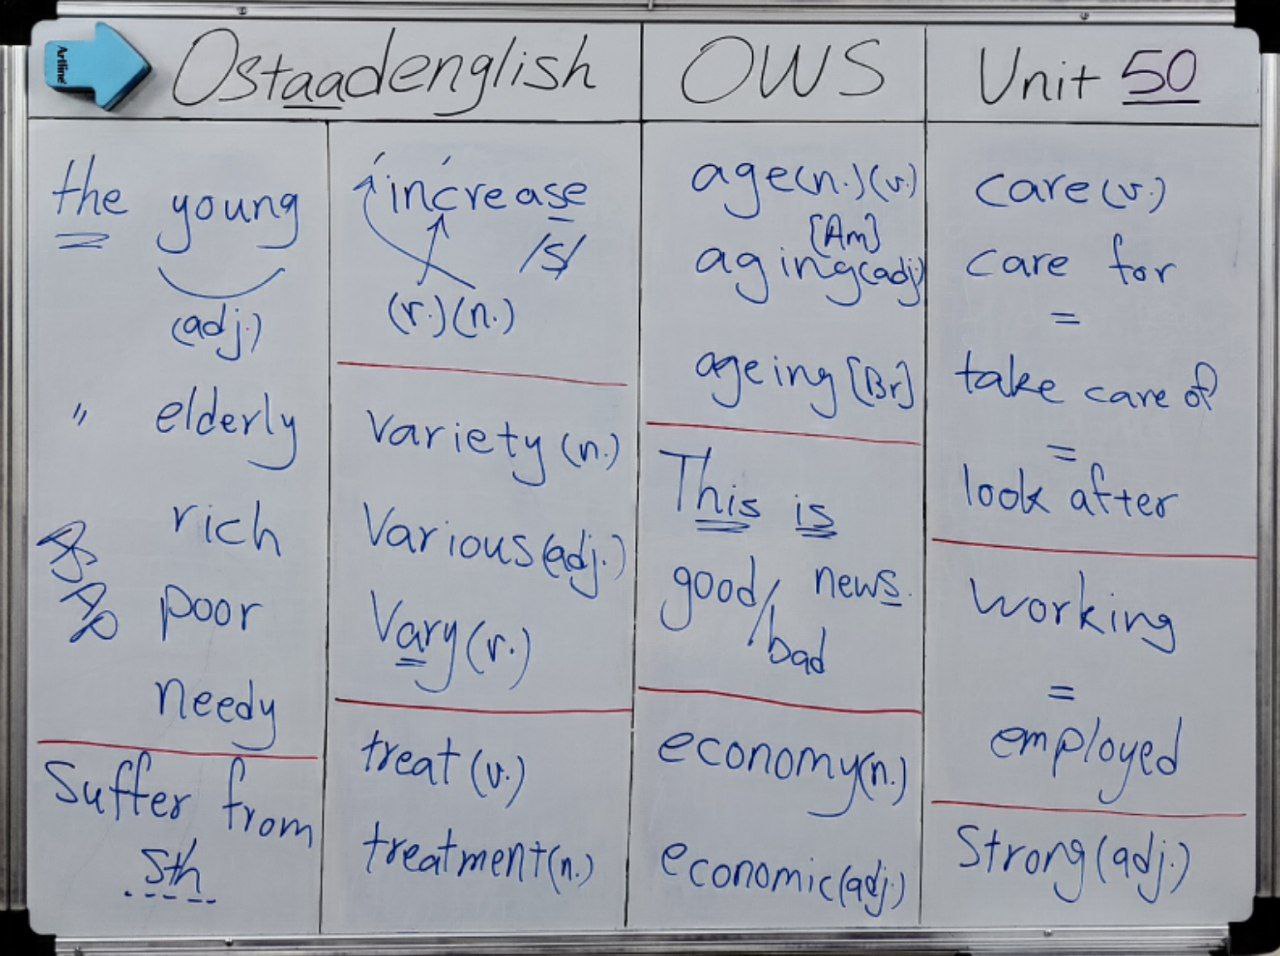 Artline
Ostaadenglish
OWS
Unit 50
the young
(adj.)
〃 elderly
rich
poor
needy
Suffer from
sth
increase
/s/
(v.)(n.)
Variety (n.)
Various (adj.)
Vary (v.)
treat (v.)
treatment (n.)
age (n.)(v.)
[Am]
aging (adj)
ageing [Br]
This is
good/ news.
bad
economy (n.)
economic (adj.)
care (v.)
care for
=
take care of
=
look after
working
=
employed
Strong (adj.)